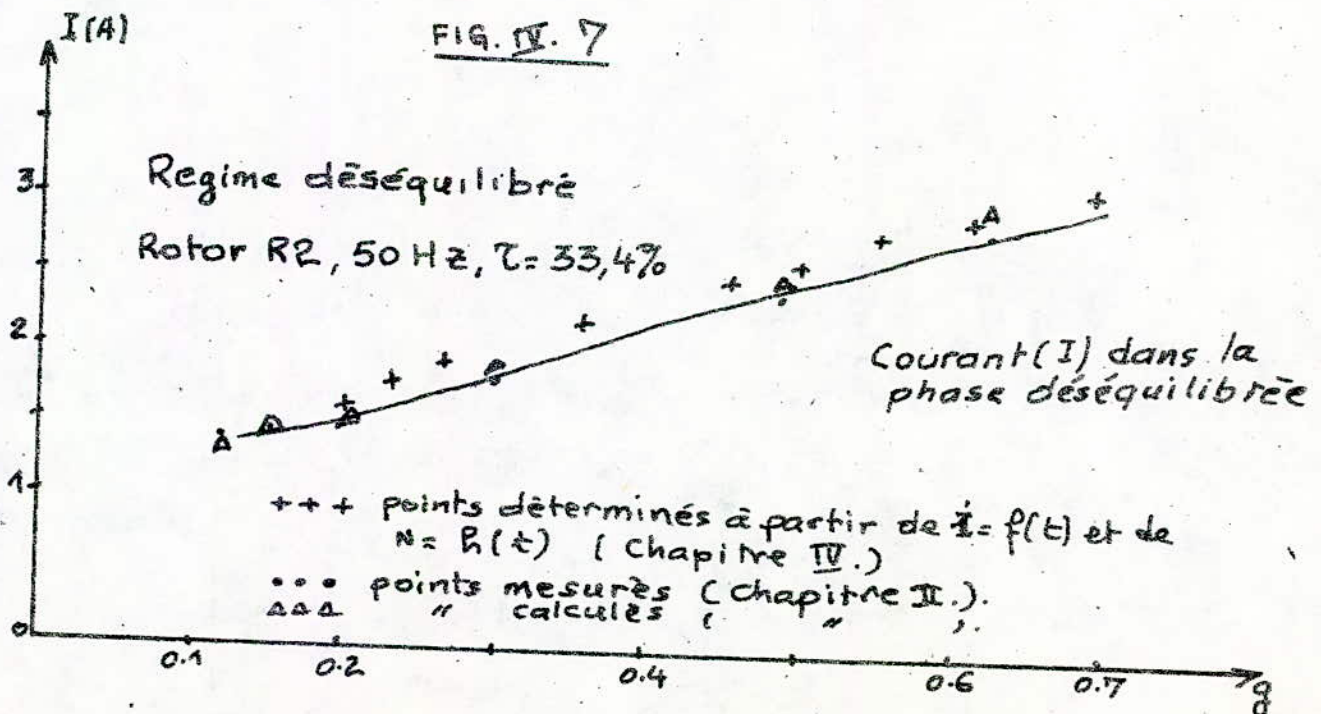 I(A)
FIG. IV. 7
3
Regime déséquilibré
Rotor R2, 50 Hz, τ= 33,4%
2
Courant(I) dans la
phase déséquilibrée
1
+ + + points déterminés à partir de i= f(t) et de
N= h(t) ( Chapitre IV.)
• • • points mesurès ( Chapitre II.).
△ △ △ " calculès ( " ).
0
0.1 0.2 0.4 0.6 0.7 g